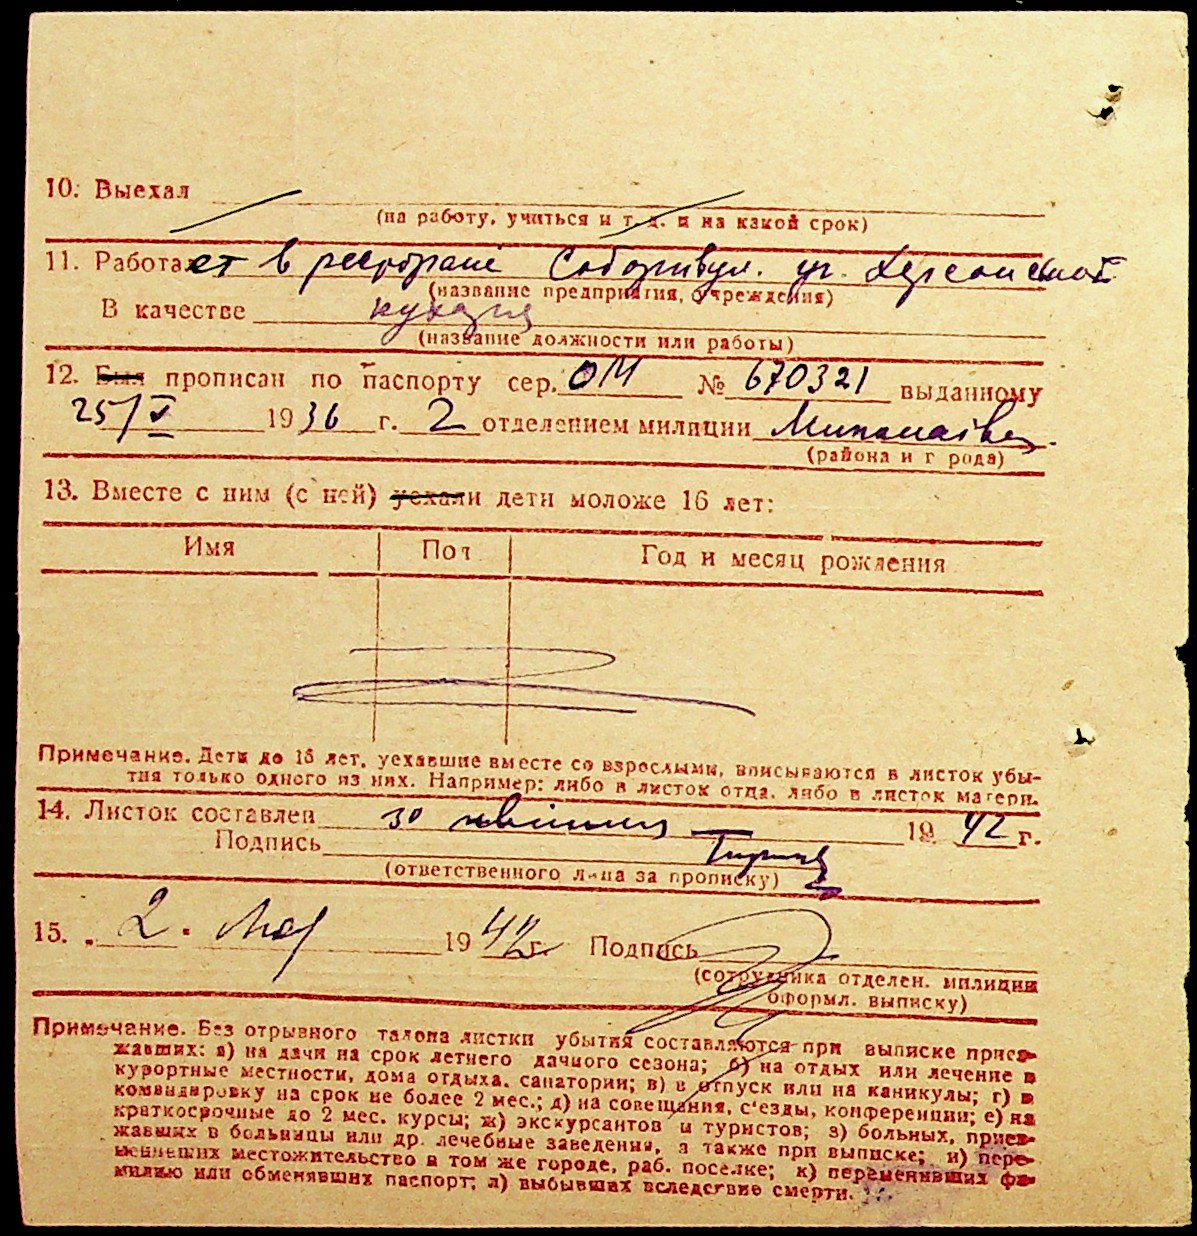 10. Выехал
(на работу, учиться и т. д. и на какой срок)
11. Работает в ресторані Соборн вул. уг. Херсонської
(название предприятия, учреждения)
В качестве
(название должности или работы)
12. Был прописан по паспорту сер. ОМ № 670321 выданному
25/V 1936 г. 2 отделением милиции
(района и г рода)
13. Вместе с ним (с ней) уехали дети моложе 16 лет:
Имя Пол Год и месяц рождения
Примечание. Дети до 16 лет, уехавшие вместе со взрослыми, вписываются в листок убы-
тия только одного из них. Например: либо в листок отца, либо в листок матери.
14. Листок составлен 30 квітня 1942 г.
Подпись
(ответственного лица за прописку)
15. „ 2 " Мая 1942 г. Подпись
(сотрудника отделен. милиции
оформл. выписку)
Примечание. Без отрывного талона листки убытия составляются при выписке приез-
жавших: а) на дачи на срок летнего дачного сезона; б) на отдых или лечение в
курортные местности, дома отдыха, санатории; в) в отпуск или на каникулы; г) в
командировку на срок не более 2 мес.; д) на совещания, с'езды, конференции; е) на
краткосрочные до 2 мес. курсы; ж) экскурсантов и туристов; з) больных, приез-
жавших в больницы или др. лечебные заведения, а также при выписке; и) пере-
менивших местожительство в том же городе, раб. поселке; к) переменивших фа-
милию или обменявших паспорт; л) выбывших вследствие смерти.